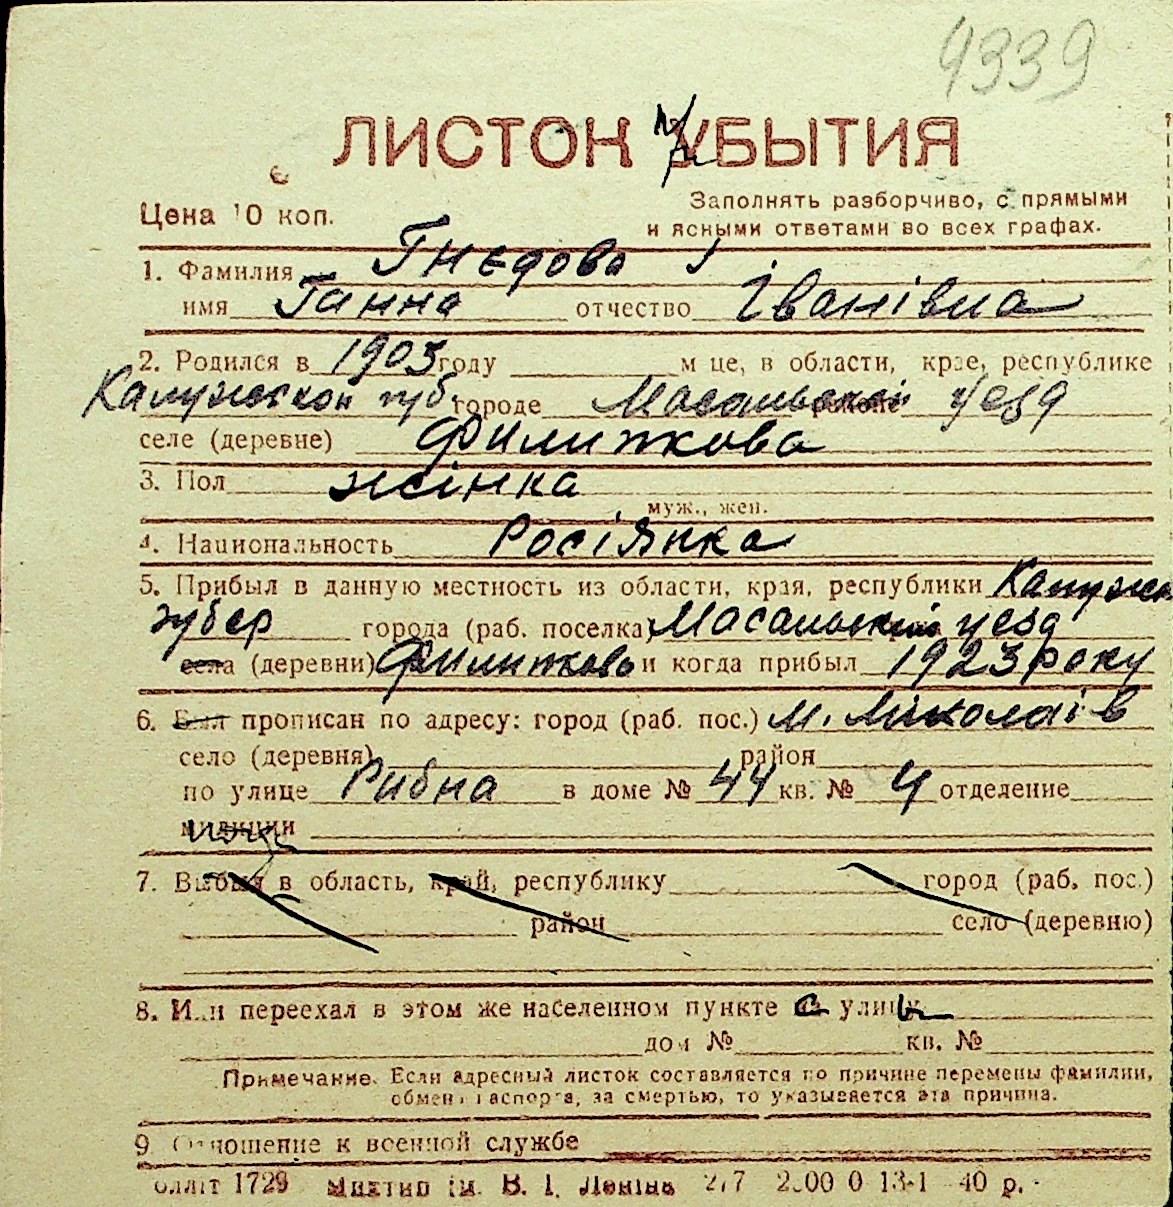 4339
ЛИСТОК УБЫТИЯ
Цена 10 коп.
Заполнять разборчиво, с прямыми
и ясными ответами во всех графах.
1. Фамилия Гнєдова
имя Ганна отчество Іванівна
2. Родился в 1903 году м це, в области, крае, республике
Калужской губ. городе Масальский уезд
селе (деревне) Филипкова
3. Пол жінка
муж., жен.
4. Национальность Росіянка
5. Прибыл в данную местность из области, края, республики Калужск
губер города (раб. поселка) Масальский уезд
села (деревни) Филипково и когда прибыл 1923 року
6. Был прописан по адресу: город (раб. пос.) м. Миколаїв
село (деревня) район
по улице Рибна в доме № 44 кв. № 4 отделение
милиции
7. Выбыл в область, край, республику город (раб. пос.)
район село (деревню)
8. Или переехал в этом же населенном пункте с улицы
дом № кв. №
Примечание. Если адресный листок составляется по причине перемены фамилии,
обмена паспорта, за смертью, то указывается эта причина.
9. Отношение к военной службе
1729 В. І. Леніна 40 р.